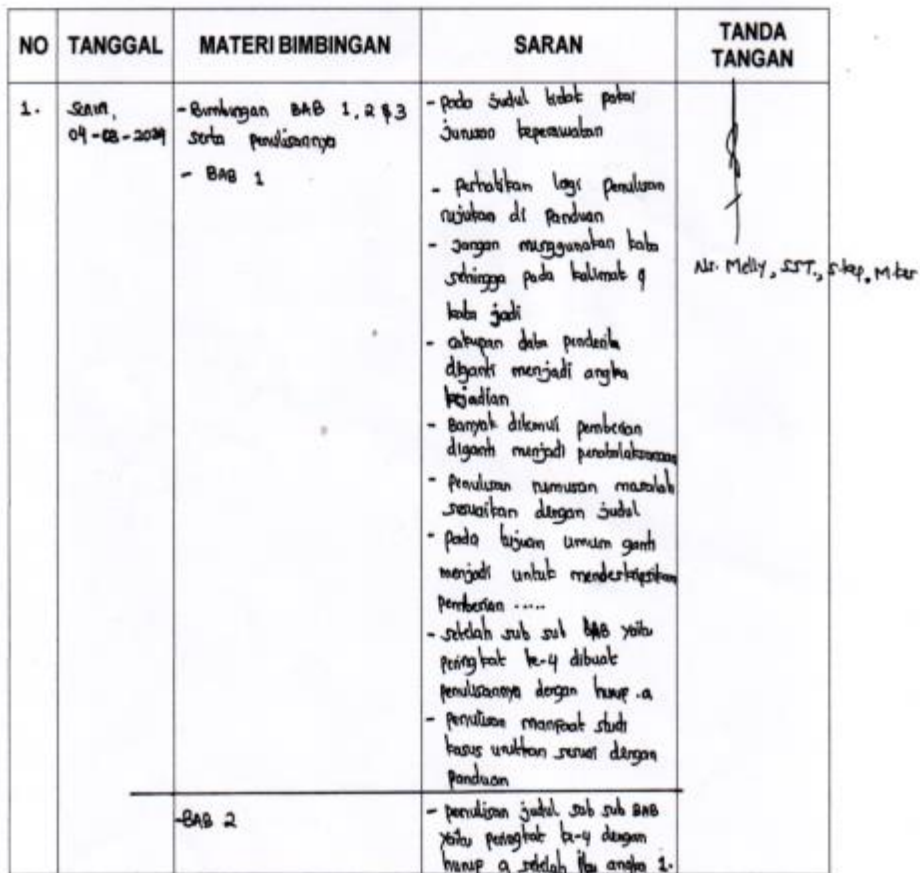 NO TANGGAL MATERI BIMBINGAN SARAN TANDA TANGAN
1. Senin,
04-03-2024
- Bimbingan BAB 1, 2 & 3
serta penulisannya
- BAB 1
- pada judul tidak pakai
jurusan keperawatan
- perhatikan lagi penulisan
rujukan di panduan
- Jangan menggunakan kata
sehingga pada kalimat &
kata jadi
- cakupan data penderita
diganti menjadi angka
kejadian
- Banyak ditemui pemberian
diganti menjadi penatalaksanaan
- penulisan rumusan masalah
sesuaikan dengan judul
- pada tujuan umum ganti
menjadi untuk mendeskripsikan
pemberian .....
- setelah sub sub BAB yaitu
peringkat ke-4 dibuat
penulisannya dengan hurup .a
- penulisan manfaat studi
kasus urutkan sesuai dengan
panduan
Ns. Melly, SST., S.kep, M.kes
- BAB 2
- penulisan judul sub sub BAB
yaitu peringkat ke-4 dengan
hurup a setelah itu angka 1.